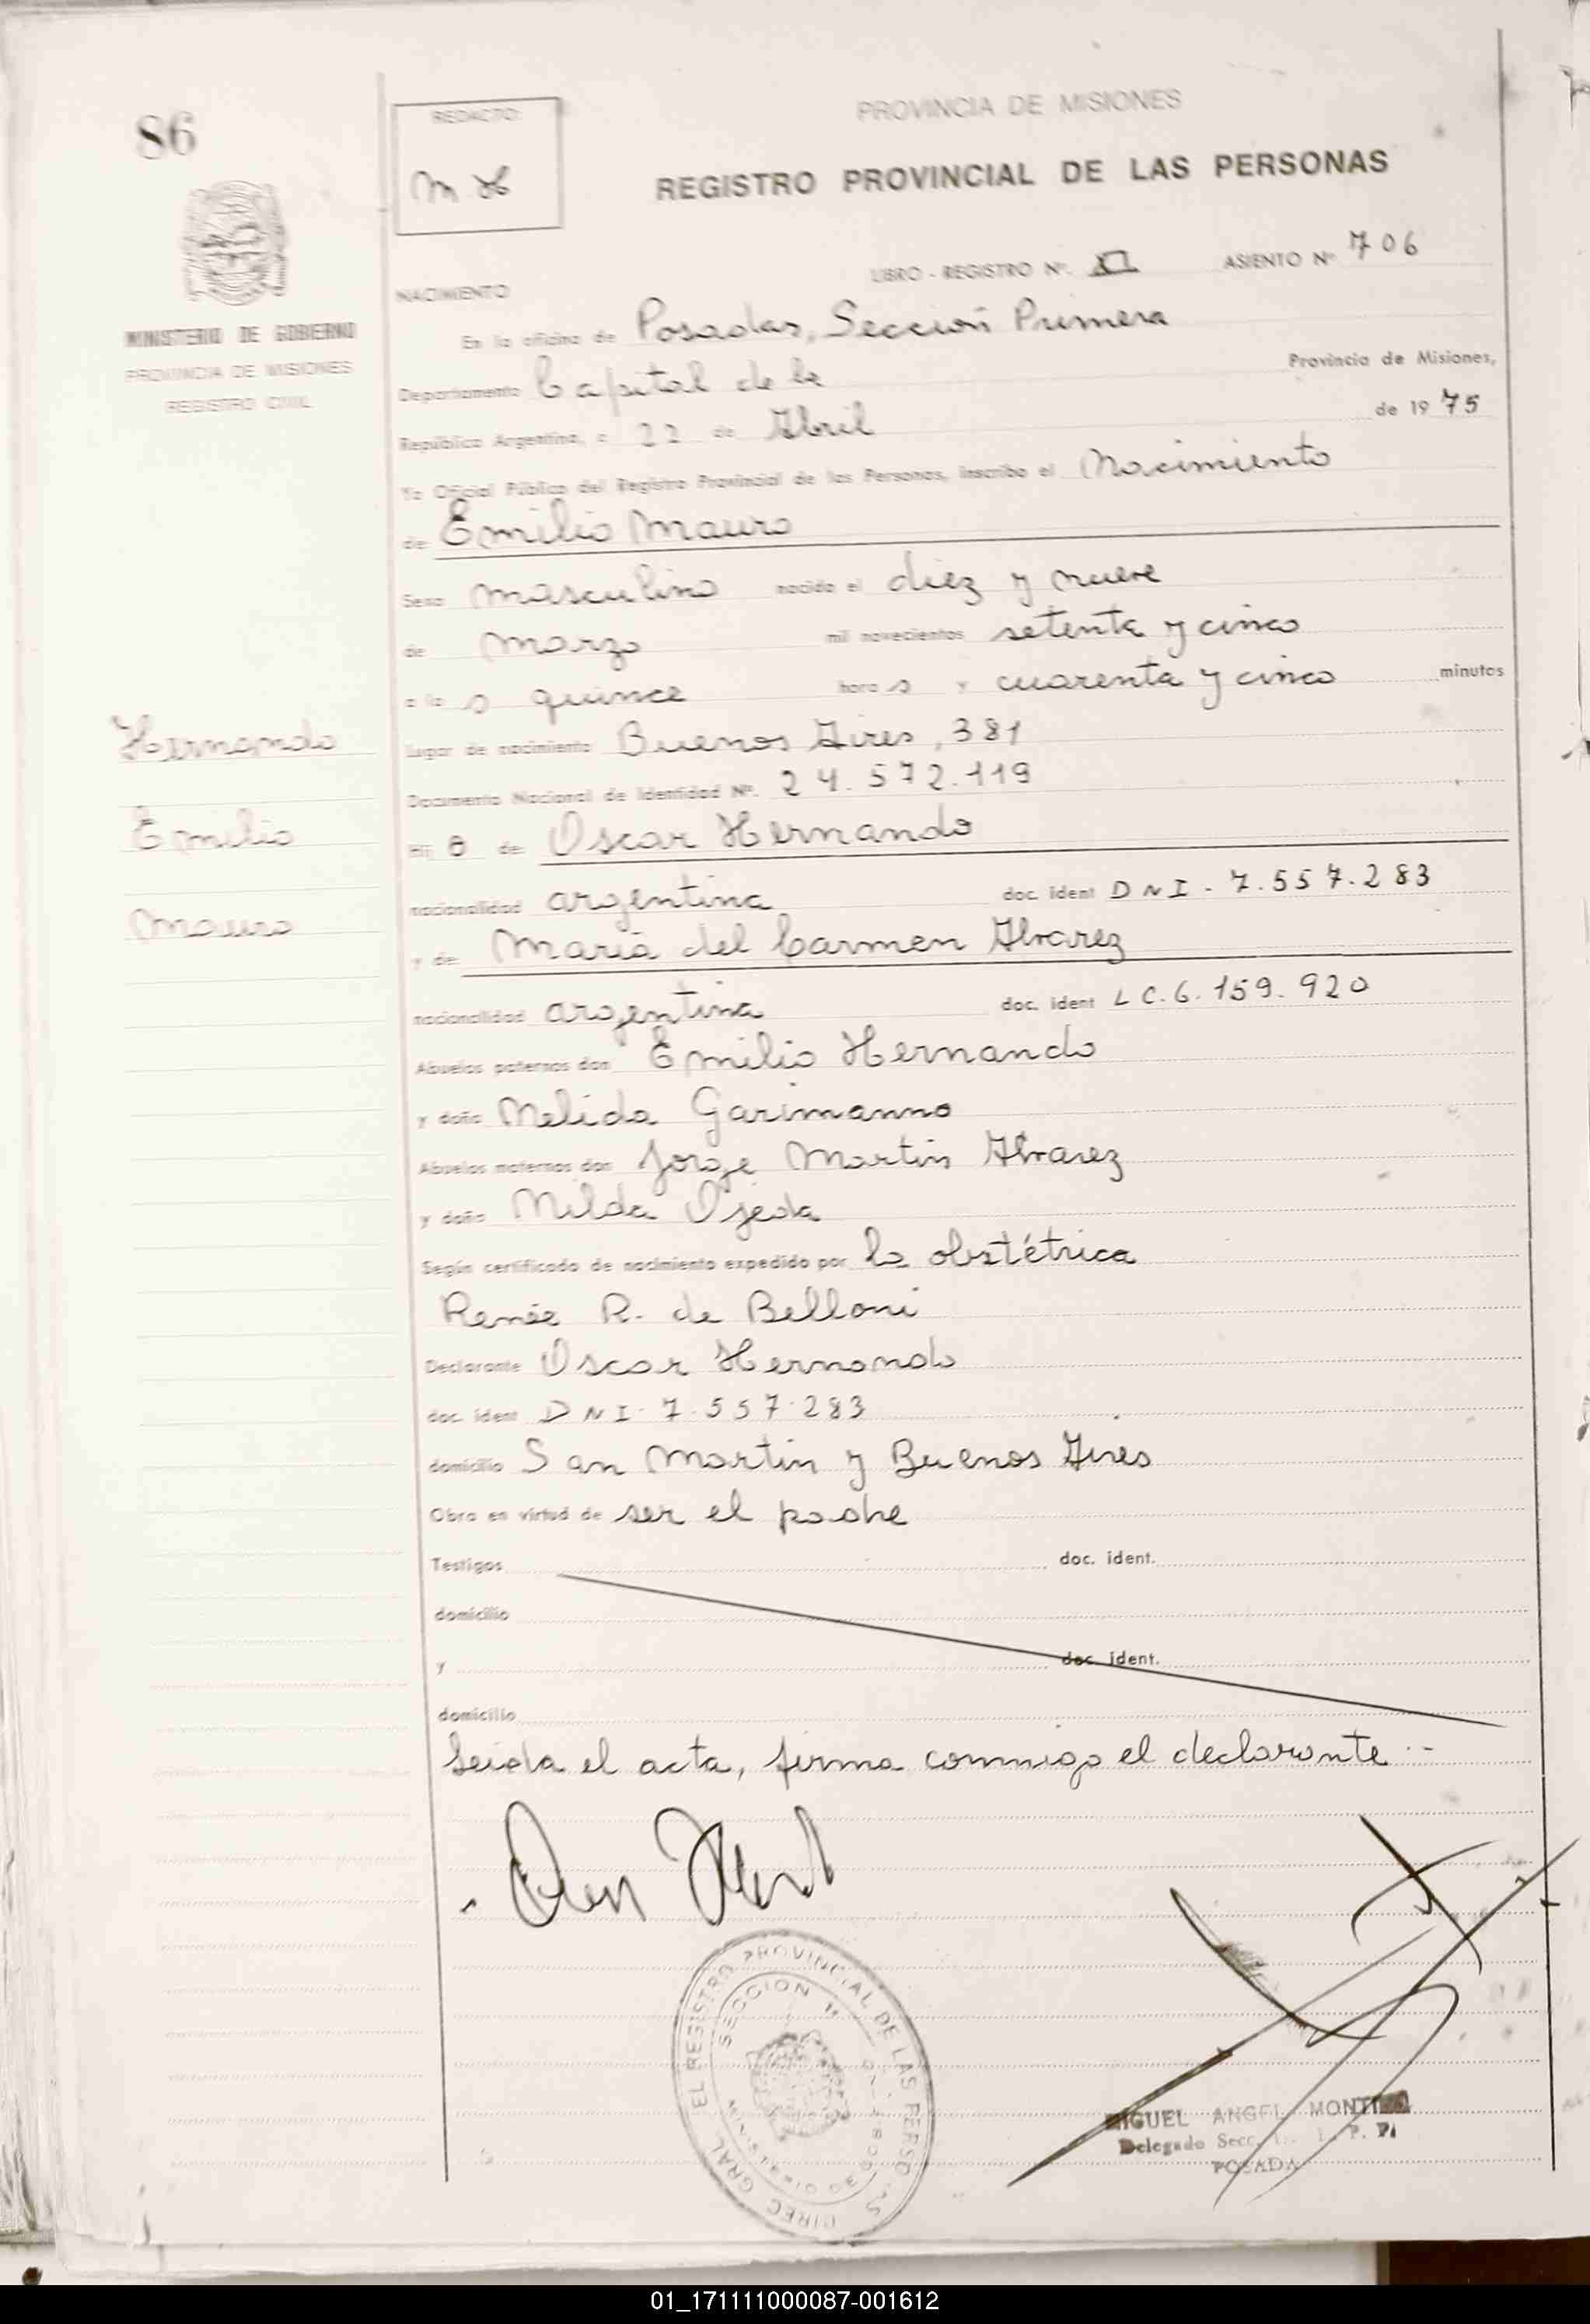 86
REDACTO:
M. H
PROVINCIA DE MISIONES
REGISTRO PROVINCIAL DE LAS PERSONAS
MINISTERIO DE GOBIERNO
PROVINCIA DE MISIONES
REGISTRO CIVIL
LIBRO - REGISTRO Nº. II ASIENTO Nº 706
NACIMIENTO
En la oficina de Posadas, Sección Primera
Departamento Capital de la Provincia de Misiones,
República Argentina, a 22 de Abril de 1975
Yo Oficial Público del Registro Provincial de las Personas, inscribo el Nacimiento
de Emilio Mauro
Sexo masculino nacido el diez y nueve
de marzo mil novecientos setenta y cinco
a la s quince hora s y cuarenta y cinco minutos
Hernando
Emilio
Mauro
Lugar de nacimiento Buenos Aires, 381
Documento Nacional de Identidad Nº. 24.572.119
Hij o de Oscar Hernando
nacionalidad argentina doc. ident DNI. 7.557.283
y de María del Carmen Alvarez
nacionalidad argentina doc. ident LC. 6.159.920
Abuelos paternos don Emilio Hernando
y doña Nelida Garimanno
Abuelos maternos don Jorge Martin Alvarez
y doña Nilda Ojeda
Según certificado de nacimiento expedido por la obstétrica
Renée R. de Belloni
Declarante Oscar Hernando
doc. ident DNI. 7.557.283
domicilio San Martin y Buenos Aires
Obra en virtud de ser el padre
Testigos doc. ident.
domicilio
y doc. ident.
domicilio
Leída el acta, firma conmigo el declarante.-
DIREC. GRAL. EL REGISTRO PROVINCIAL DE LAS PERSONAS
SECCION 1ª
MINISTERIO DE GOBIERNO
MIGUEL ANGEL
Delegado Secc. P. P.
POSADA
01_171111000087-001612